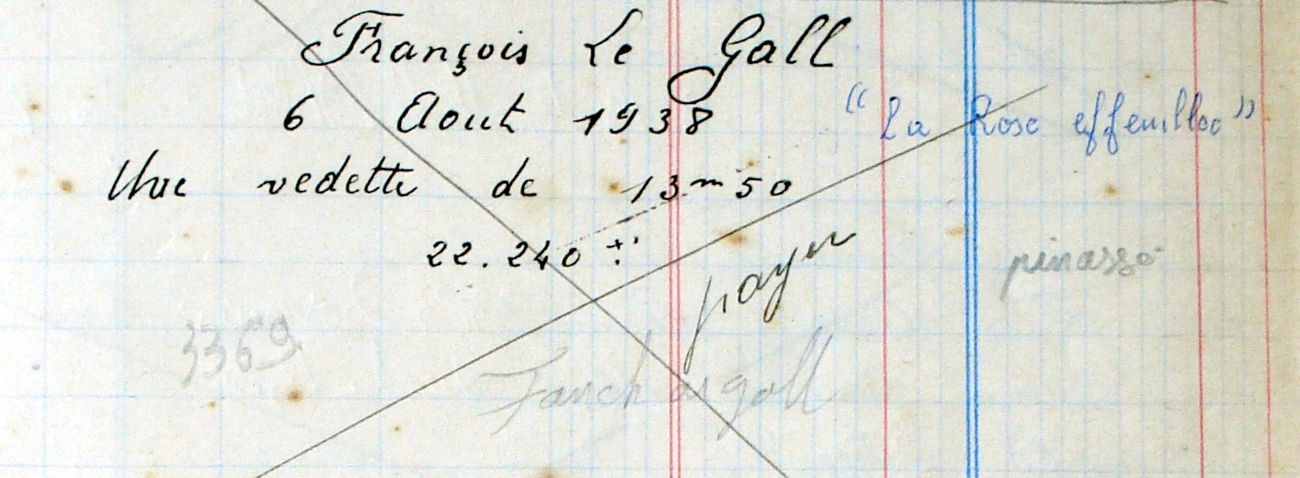 François Le Gall
6 Aout 1938 “La Rose effeuillée”
Une vedette de 13m50
22.240 f
payer
pinasse
3369
Fanch ar gall